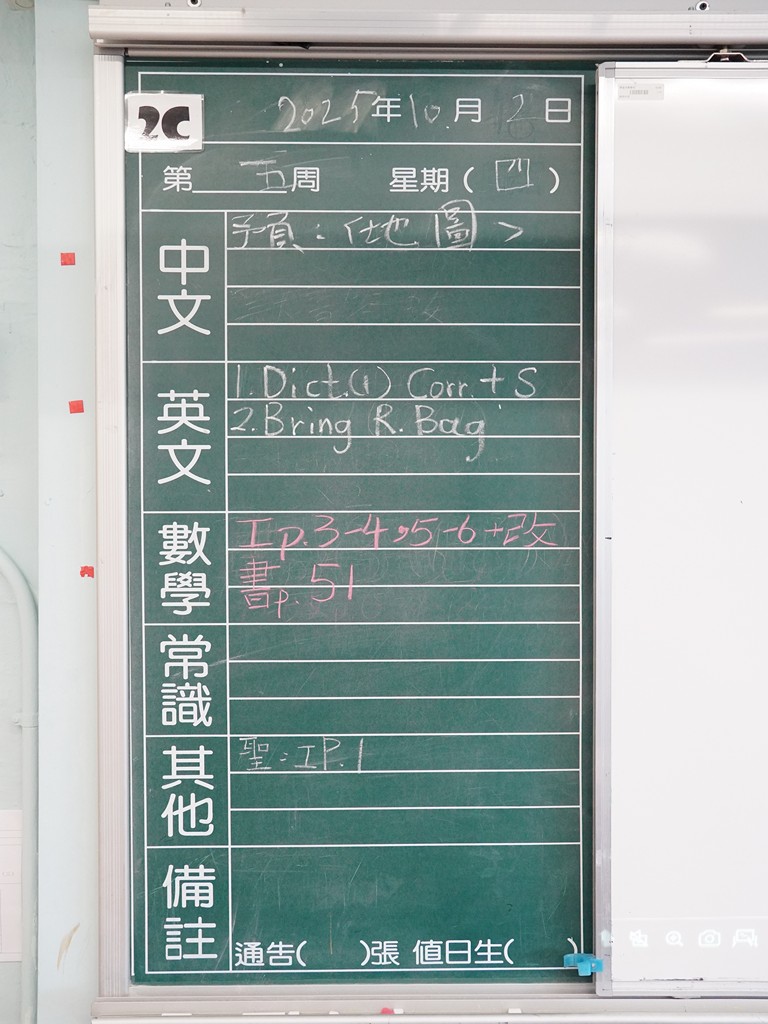 2C
2025年10月2日
第五周 星期(四)
中文
預:〈地圖〉
英文
1. Dict.(1) Corr. + S
2. Bring R. Bag
數學
工p.3-4,5-6+改
書p.51
常識
其他
聖:工P.1
備註
通告( )張 值日生( )